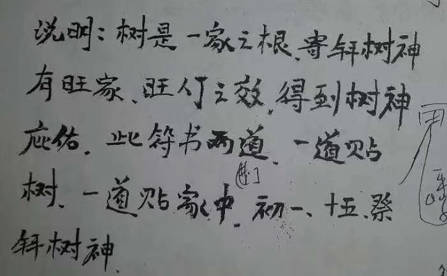 说明：树是一家之根、寄钎树神
有旺家、旺人之效，得到树神
庇佑。此符书两道，一道贴
树，一道贴家中，初一、十五祭
钎树神